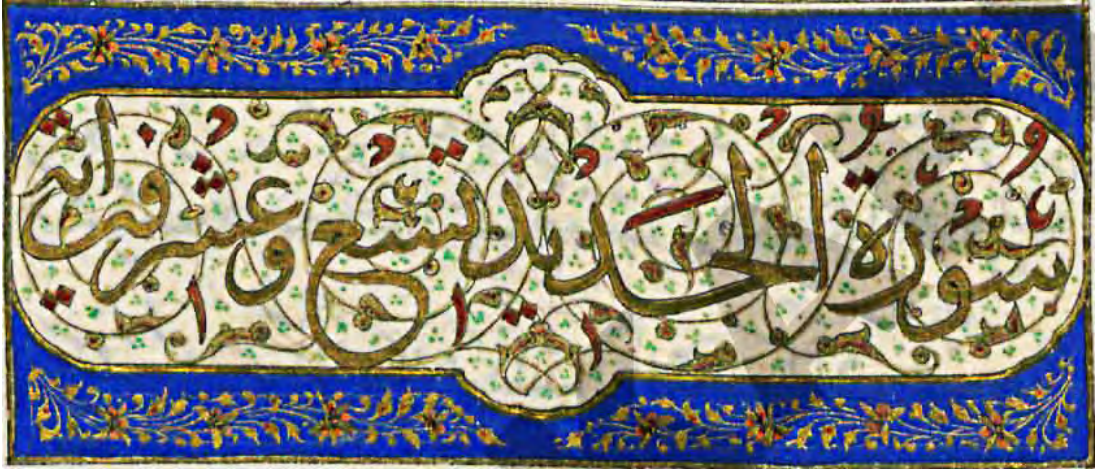 سُورَةُ الْحَدِيدِ تِسْعٌ وَعِشْرُونَ اٰيَةً